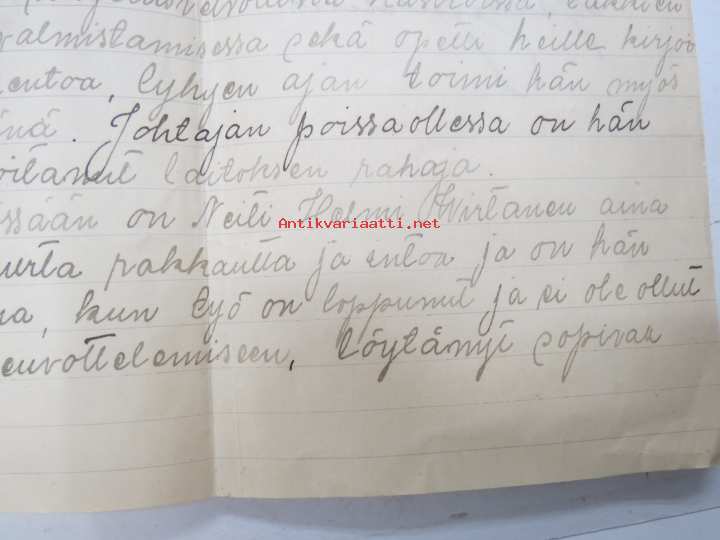 valmistamisessa sekä opetti heille kirjoi
entoa, lyhyen ajan toimi hän myös
inä. Johtajan poissaollessa on hän
oitanut laitoksen rahoja.
ssään on Neiti Helmi Wirtanen aina
Antikvariaatti.net
urta rakkautta ja intoa ja on hän
na, kun työ on loppunut ja ei ole ollut
euvottelemiseen, löytänyt sopivan